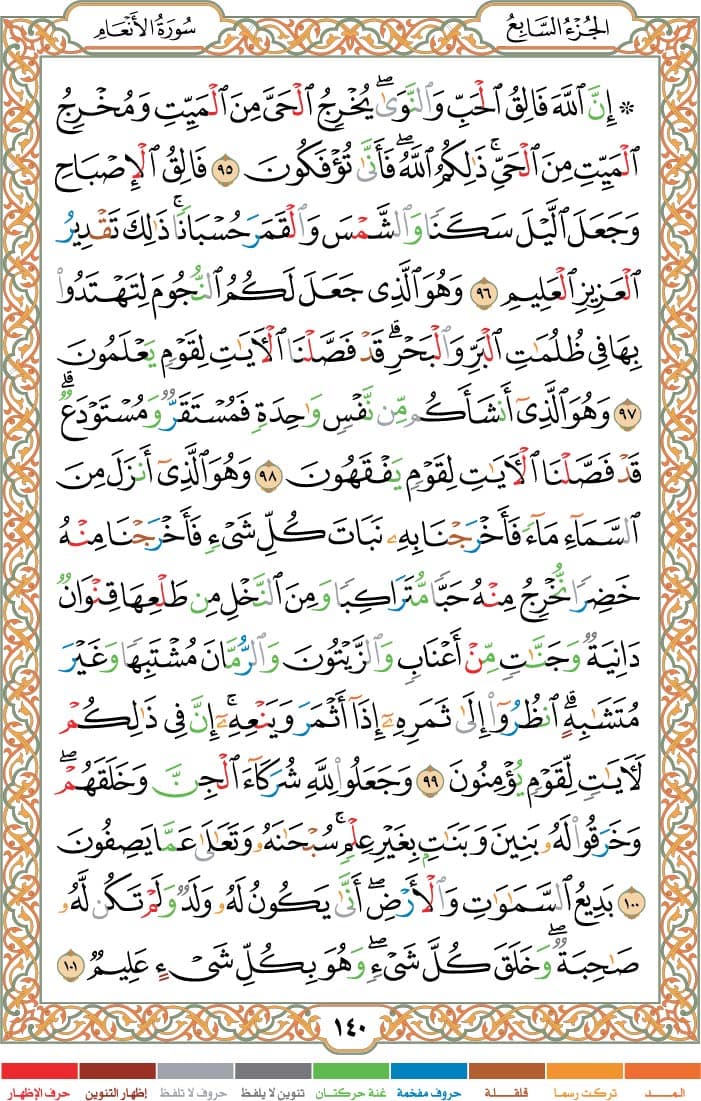 الجُزْءُ السَّابِعُ
سُورَةُ الأَنْعَامِ
۞ إِنَّ ٱللَّهَ فَالِقُ ٱلْحَبِّ وَٱلنَّوَىٰ ۖ يُخْرِجُ ٱلْحَىَّ مِنَ ٱلْمَيِّتِ وَمُخْرِجُ
ٱلْمَيِّتِ مِنَ ٱلْحَىِّ ۚ ذَٰلِكُمُ ٱللَّهُ ۖ فَأَنَّىٰ تُؤْفَكُونَ ٩٥ فَالِقُ ٱلْإِصْبَاحِ
وَجَعَلَ ٱلَّيْلَ سَكَنًا وَٱلشَّمْسَ وَٱلْقَمَرَ حُسْبَانًا ۚ ذَٰلِكَ تَقْدِيرُ
ٱلْعَزِيزِ ٱلْعَلِيمِ ٩٦ وَهُوَ ٱلَّذِى جَعَلَ لَكُمُ ٱلنُّجُومَ لِتَهْتَدُوا۟
بِهَا فِى ظُلُمَٰتِ ٱلْبَرِّ وَٱلْبَحْرِ ۗ قَدْ فَصَّلْنَا ٱلْءَايَٰتِ لِقَوْمٍ يَعْلَمُونَ
٩٧ وَهُوَ ٱلَّذِىٓ أَنشَأَكُم مِّن نَّفْسٍ وَٰحِدَةٍ فَمُسْتَقَرٌّ وَمُسْتَوْدَعٌ ۗ
قَدْ فَصَّلْنَا ٱلْءَايَٰتِ لِقَوْمٍ يَفْقَهُونَ ٩٨ وَهُوَ ٱلَّذِىٓ أَنزَلَ مِنَ
ٱلسَّمَآءِ مَآءً فَأَخْرَجْنَا بِهِۦ نَبَاتَ كُلِّ شَىْءٍ فَأَخْرَجْنَا مِنْهُ
خَضِرًا نُّخْرِجُ مِنْهُ حَبًّا مُّتَرَاكِبًا وَمِنَ ٱلنَّخْلِ مِن طَلْعِهَا قِنْوَانٌ
دَانِيَةٌ وَجَنَّٰتٍ مِّنْ أَعْنَابٍ وَٱلزَّيْتُونَ وَٱلرُّمَّانَ مُشْتَبِهًا وَغَيْرَ
مُتَشَٰبِهٍ ۗ ٱنظُرُوٓا۟ إِلَىٰ ثَمَرِهِۦٓ إِذَآ أَثْمَرَ وَيَنْعِهِۦٓ ۚ إِنَّ فِى ذَٰلِكُمْ
لَءَايَٰتٍ لِّقَوْمٍ يُؤْمِنُونَ ٩٩ وَجَعَلُوا۟ لِلَّهِ شُرَكَآءَ ٱلْجِنَّ وَخَلَقَهُمْ ۖ
وَخَرَقُوا۟ لَهُۥ بَنِينَ وَبَنَٰتٍۭ بِغَيْرِ عِلْمٍ ۚ سُبْحَٰنَهُۥ وَتَعَٰلَىٰ عَمَّا يَصِفُونَ
١٠٠ بَدِيعُ ٱلسَّمَٰوَٰتِ وَٱلْأَرْضِ ۖ أَنَّىٰ يَكُونُ لَهُۥ وَلَدٌ وَلَمْ تَكُن لَّهُۥ
صَٰحِبَةٌ ۖ وَخَلَقَ كُلَّ شَىْءٍ ۖ وَهُوَ بِكُلِّ شَىْءٍ عَلِيمٌ ١٠١
١٤٠
المـــد تركت رسما قلقـــلة حروف مفخمة غنة حركتان تنوين لا يلفظ حروف لا تلفظ إظهار التنوين حرف الإظهار